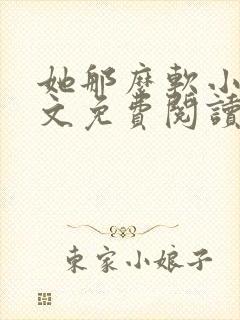 她那麼軟小
文免費閱讀
東家小娘子